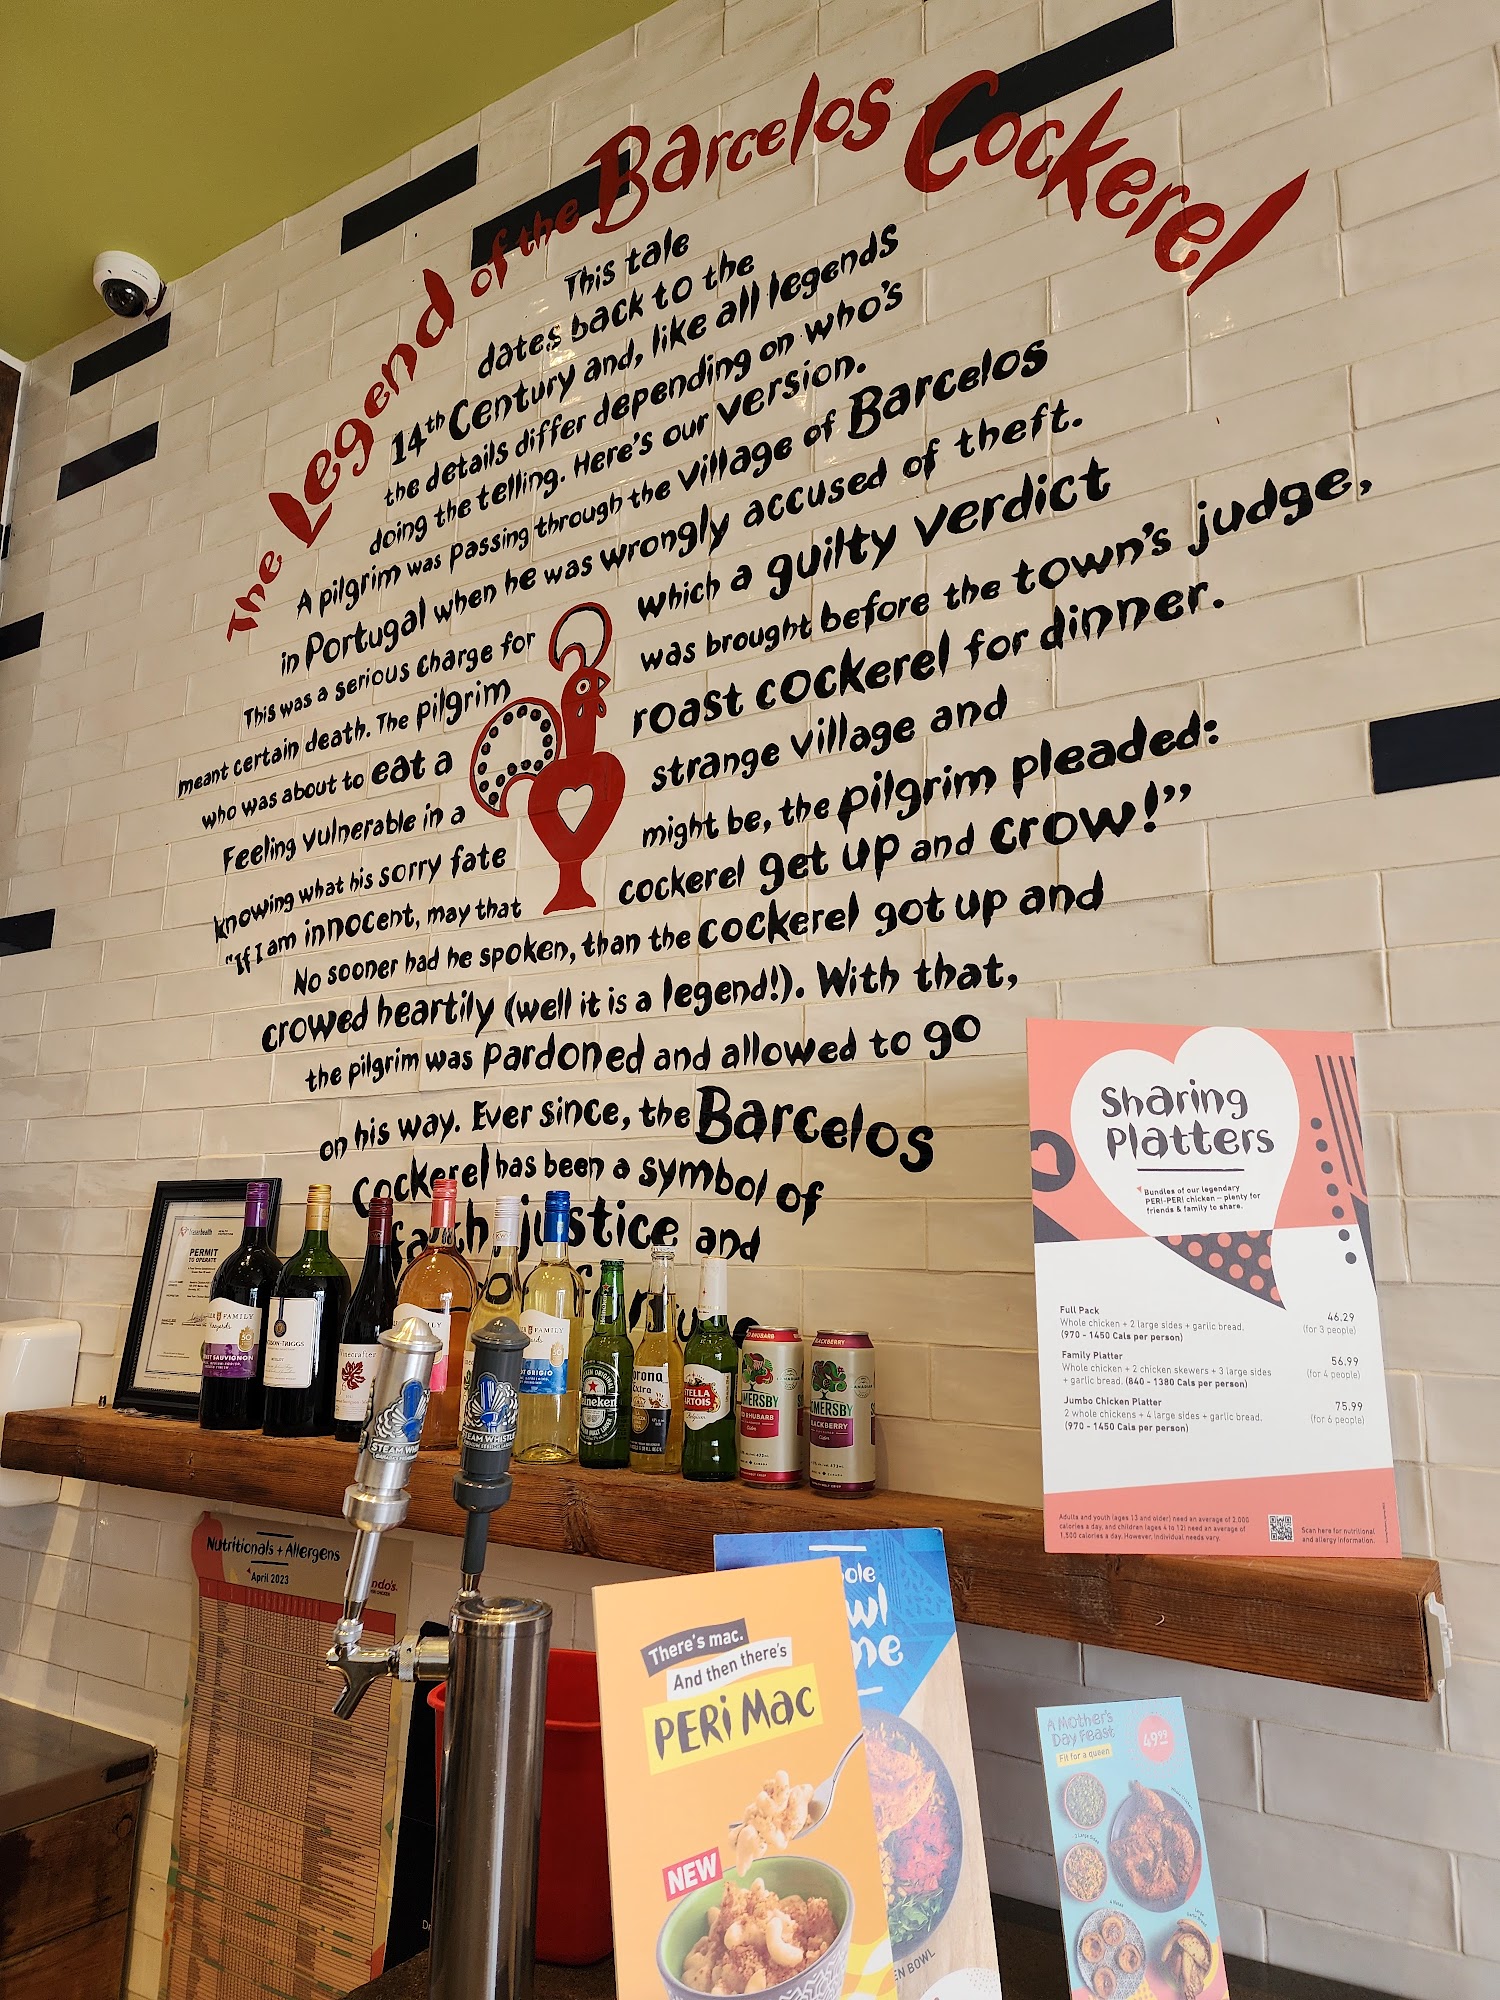 The Legend of the Barcelos Cockerel
This tale
dates back to the
14th Century and, like all legends
the details differ depending on who's
doing the telling. Here's our version.
A pilgrim was passing through the village of Barcelos
in Portugal when he was wrongly accused of theft.
This was a serious charge for which a guilty verdict
meant certain death. The pilgrim was brought before the town's judge,
who was about to eat a roast cockerel for dinner.
Feeling vulnerable in a strange village and
knowing what his sorry fate might be, the pilgrim pleaded:
"If I am innocent, may that cockerel get up and crow!"
No sooner had he spoken, than the cockerel got up and
crowed heartily (well it is a legend!). With that,
the pilgrim was pardoned and allowed to go
on his way. Ever since, the Barcelos
Cockerel has been a symbol of
faith, justice and
PERMIT
TO OPERATE
FAMILY
MERLOT
FAMILY
Heineken
Extra
STELLA
ARTOIS
RHUBARB
MERSBY
RHUBARB
BLACKBERRY
MERSBY
BLACKBERRY
STEAM WHISTLE
Sharing
Platters
Bundles of our legendary
PERi-PERi chicken – plenty for
friends & family to share.
Full Pack
46.29
Whole chicken + 2 large sides + garlic bread.
(for 3 people)
(970 - 1450 Cals per person)
Family Platter
56.99
Whole chicken + 2 chicken skewers + 3 large sides
(for 4 people)
+ garlic bread. (840 - 1380 Cals per person)
Jumbo Chicken Platter
75.99
2 whole chickens + 4 large sides + garlic bread.
(for 6 people)
(970 - 1450 Cals per person)
Adults and youth (ages 13 and older) need an average of 2,000
calories a day, and children (ages 4 to 12) need an average of
1,500 calories a day. However, individual needs vary.
Scan here for nutritional
and allergy information.
Nutritionals + Allergens
April 2023
ndo's
There's mac.
And then there's
PERi Mac
NEW
EN BOWL
A Mother's
Day Feast
Fit for a queen
49.99
2 Large Sides